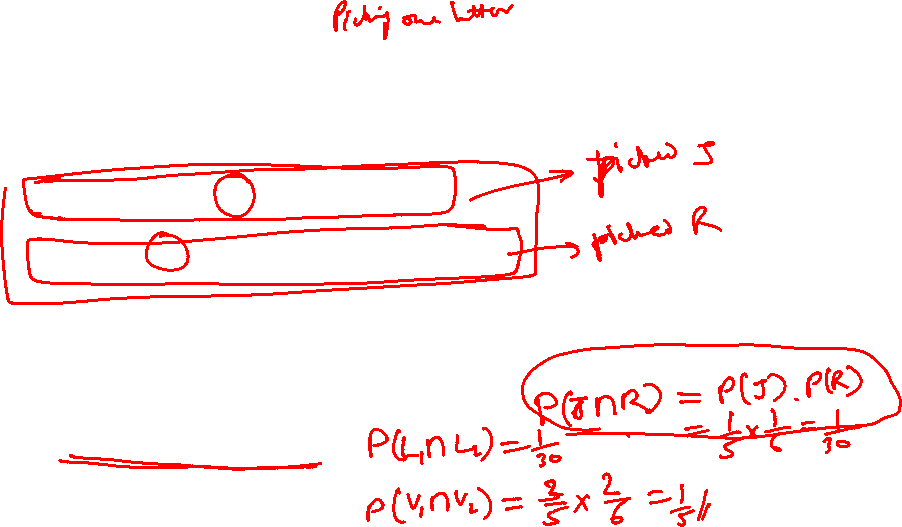 Picking one letter
picked J
picked R
P(J∩R) = P(J).P(R)
= 1/5 × 1/6 = 1/30
P(L₁∩L₂) = 1/30
P(V₁∩V₂) = 3/5 × 2/6 = 1/5 //